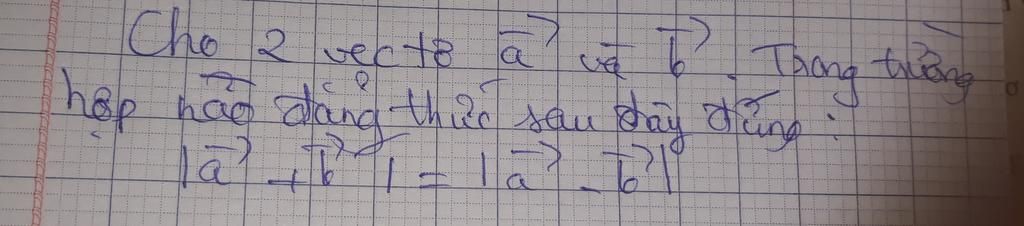 Cho 2 vectơ a⃗ và b⃗. Trong trường
hợp nào đẳng thức sau đây đúng:
|a⃗ + b⃗| = |a⃗ - b⃗|